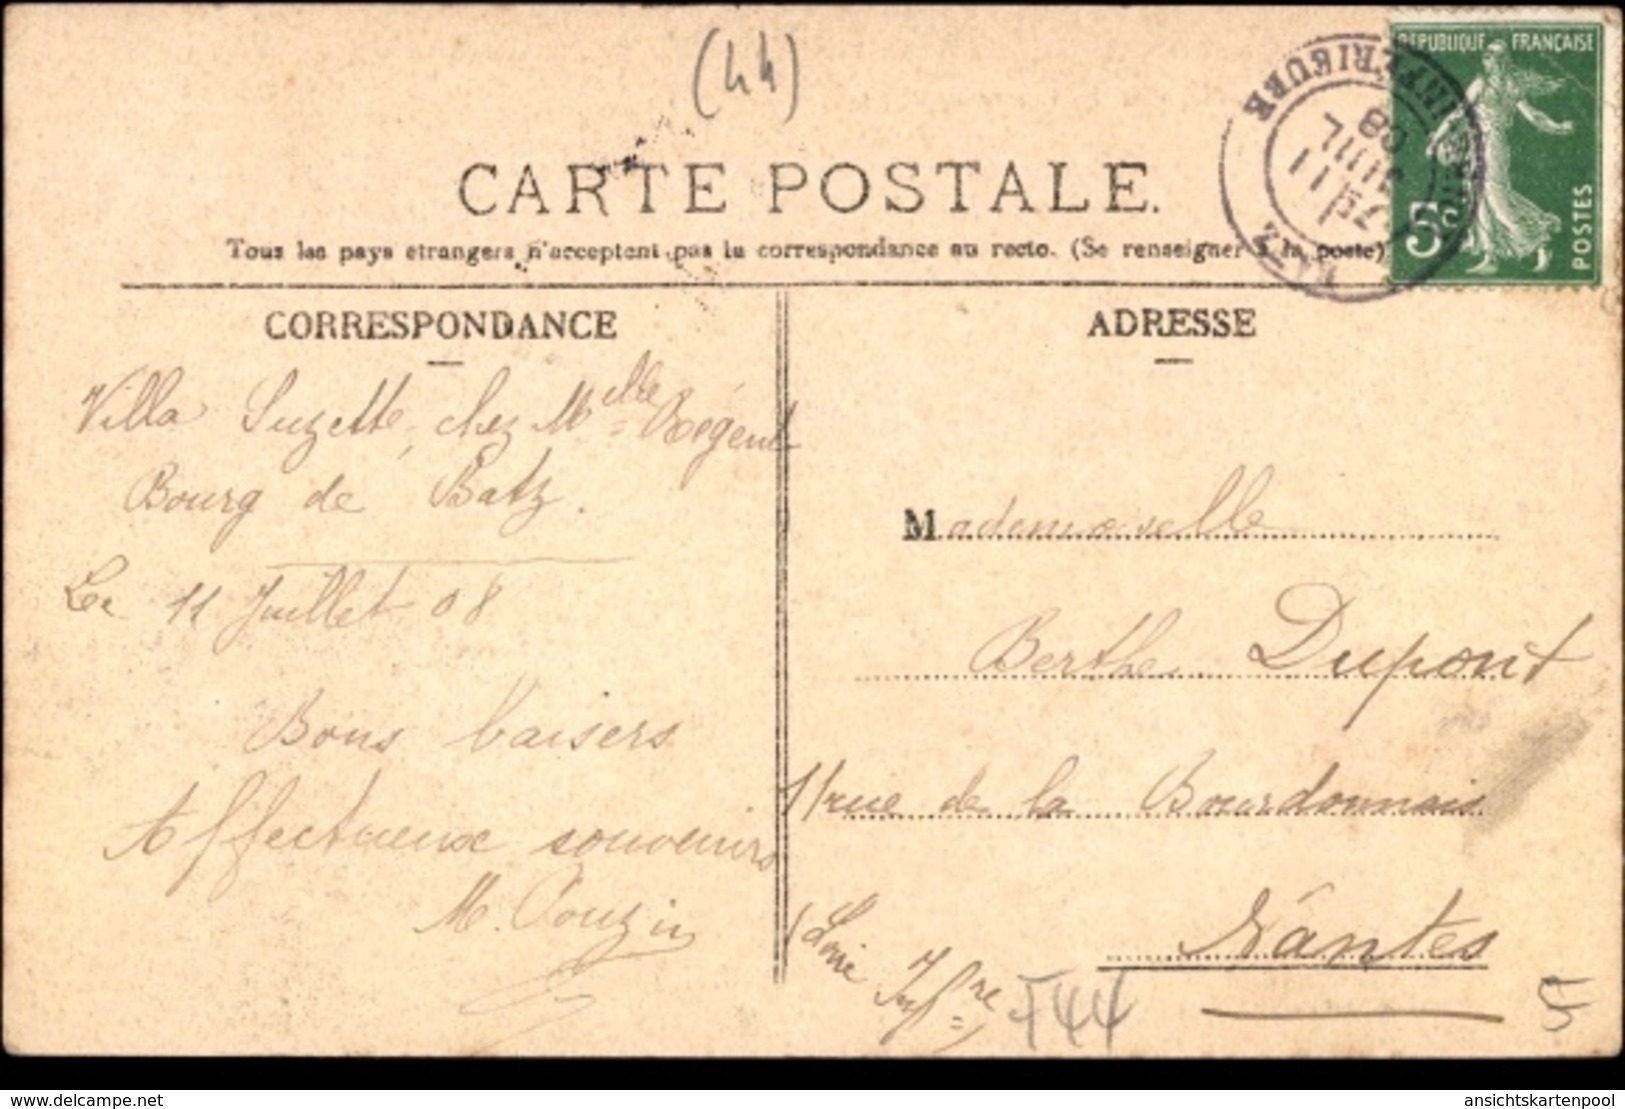 (44)
RÉPUBLIQUE FRANÇAISE
5c
POSTES
BATZ
INFÉRIEURE
11
JUIL
08
CARTE POSTALE.
Tous les pays étrangers n'acceptent pas la correspondance au recto. (Se renseigner à la poste)
CORRESPONDANCE
Villa Suzette, chez Melle Régent
Bourg de Batz.
Le 11 Juillet 08
Bons baisers
Affectueux souvenirs
M. Couzin
ADRESSE
Mademoiselle
Berthe Dupont
11 rue de la Bourdonnais
Nantes
(Loire Infre)
T44
5
www.delcampe.net
ansichtskartenpool